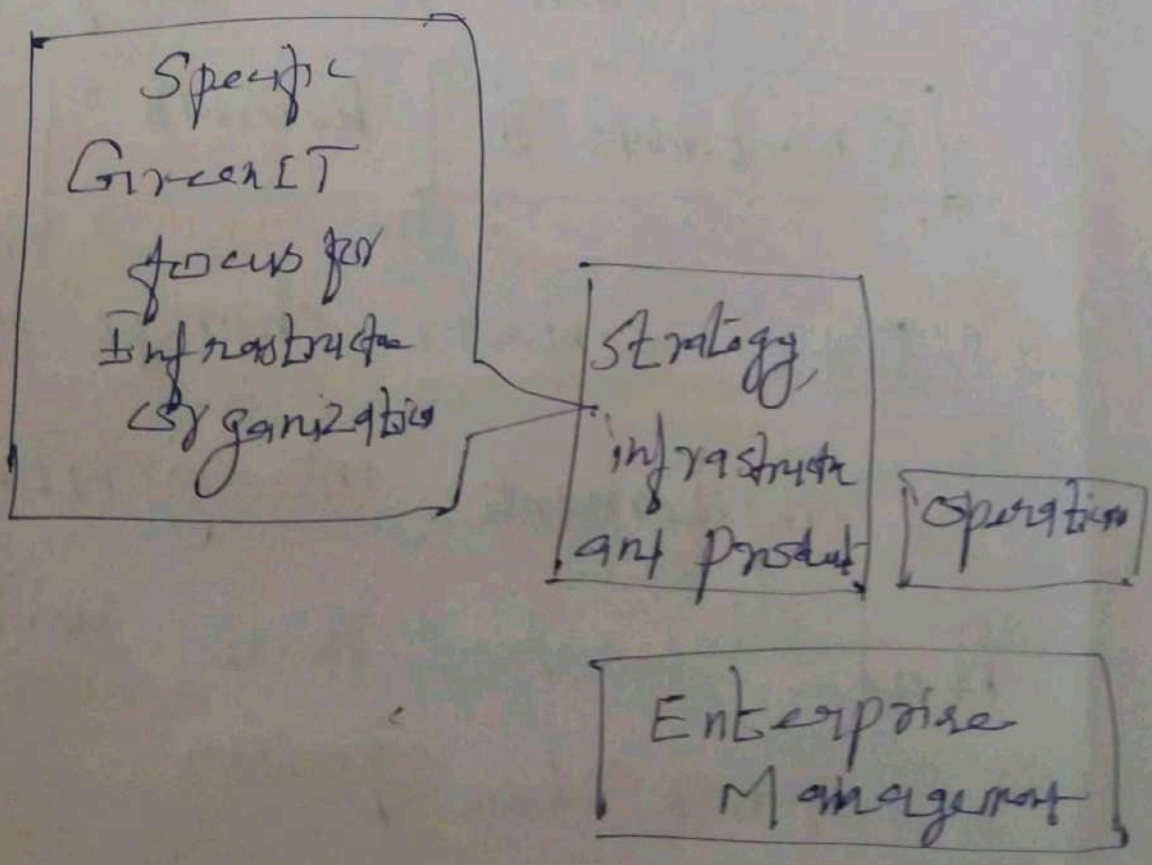 Specific
Green IT
focus for
Infrastructe
Organization
Strategy,
infrastructe
and Product
Operation
Enterprise
Management